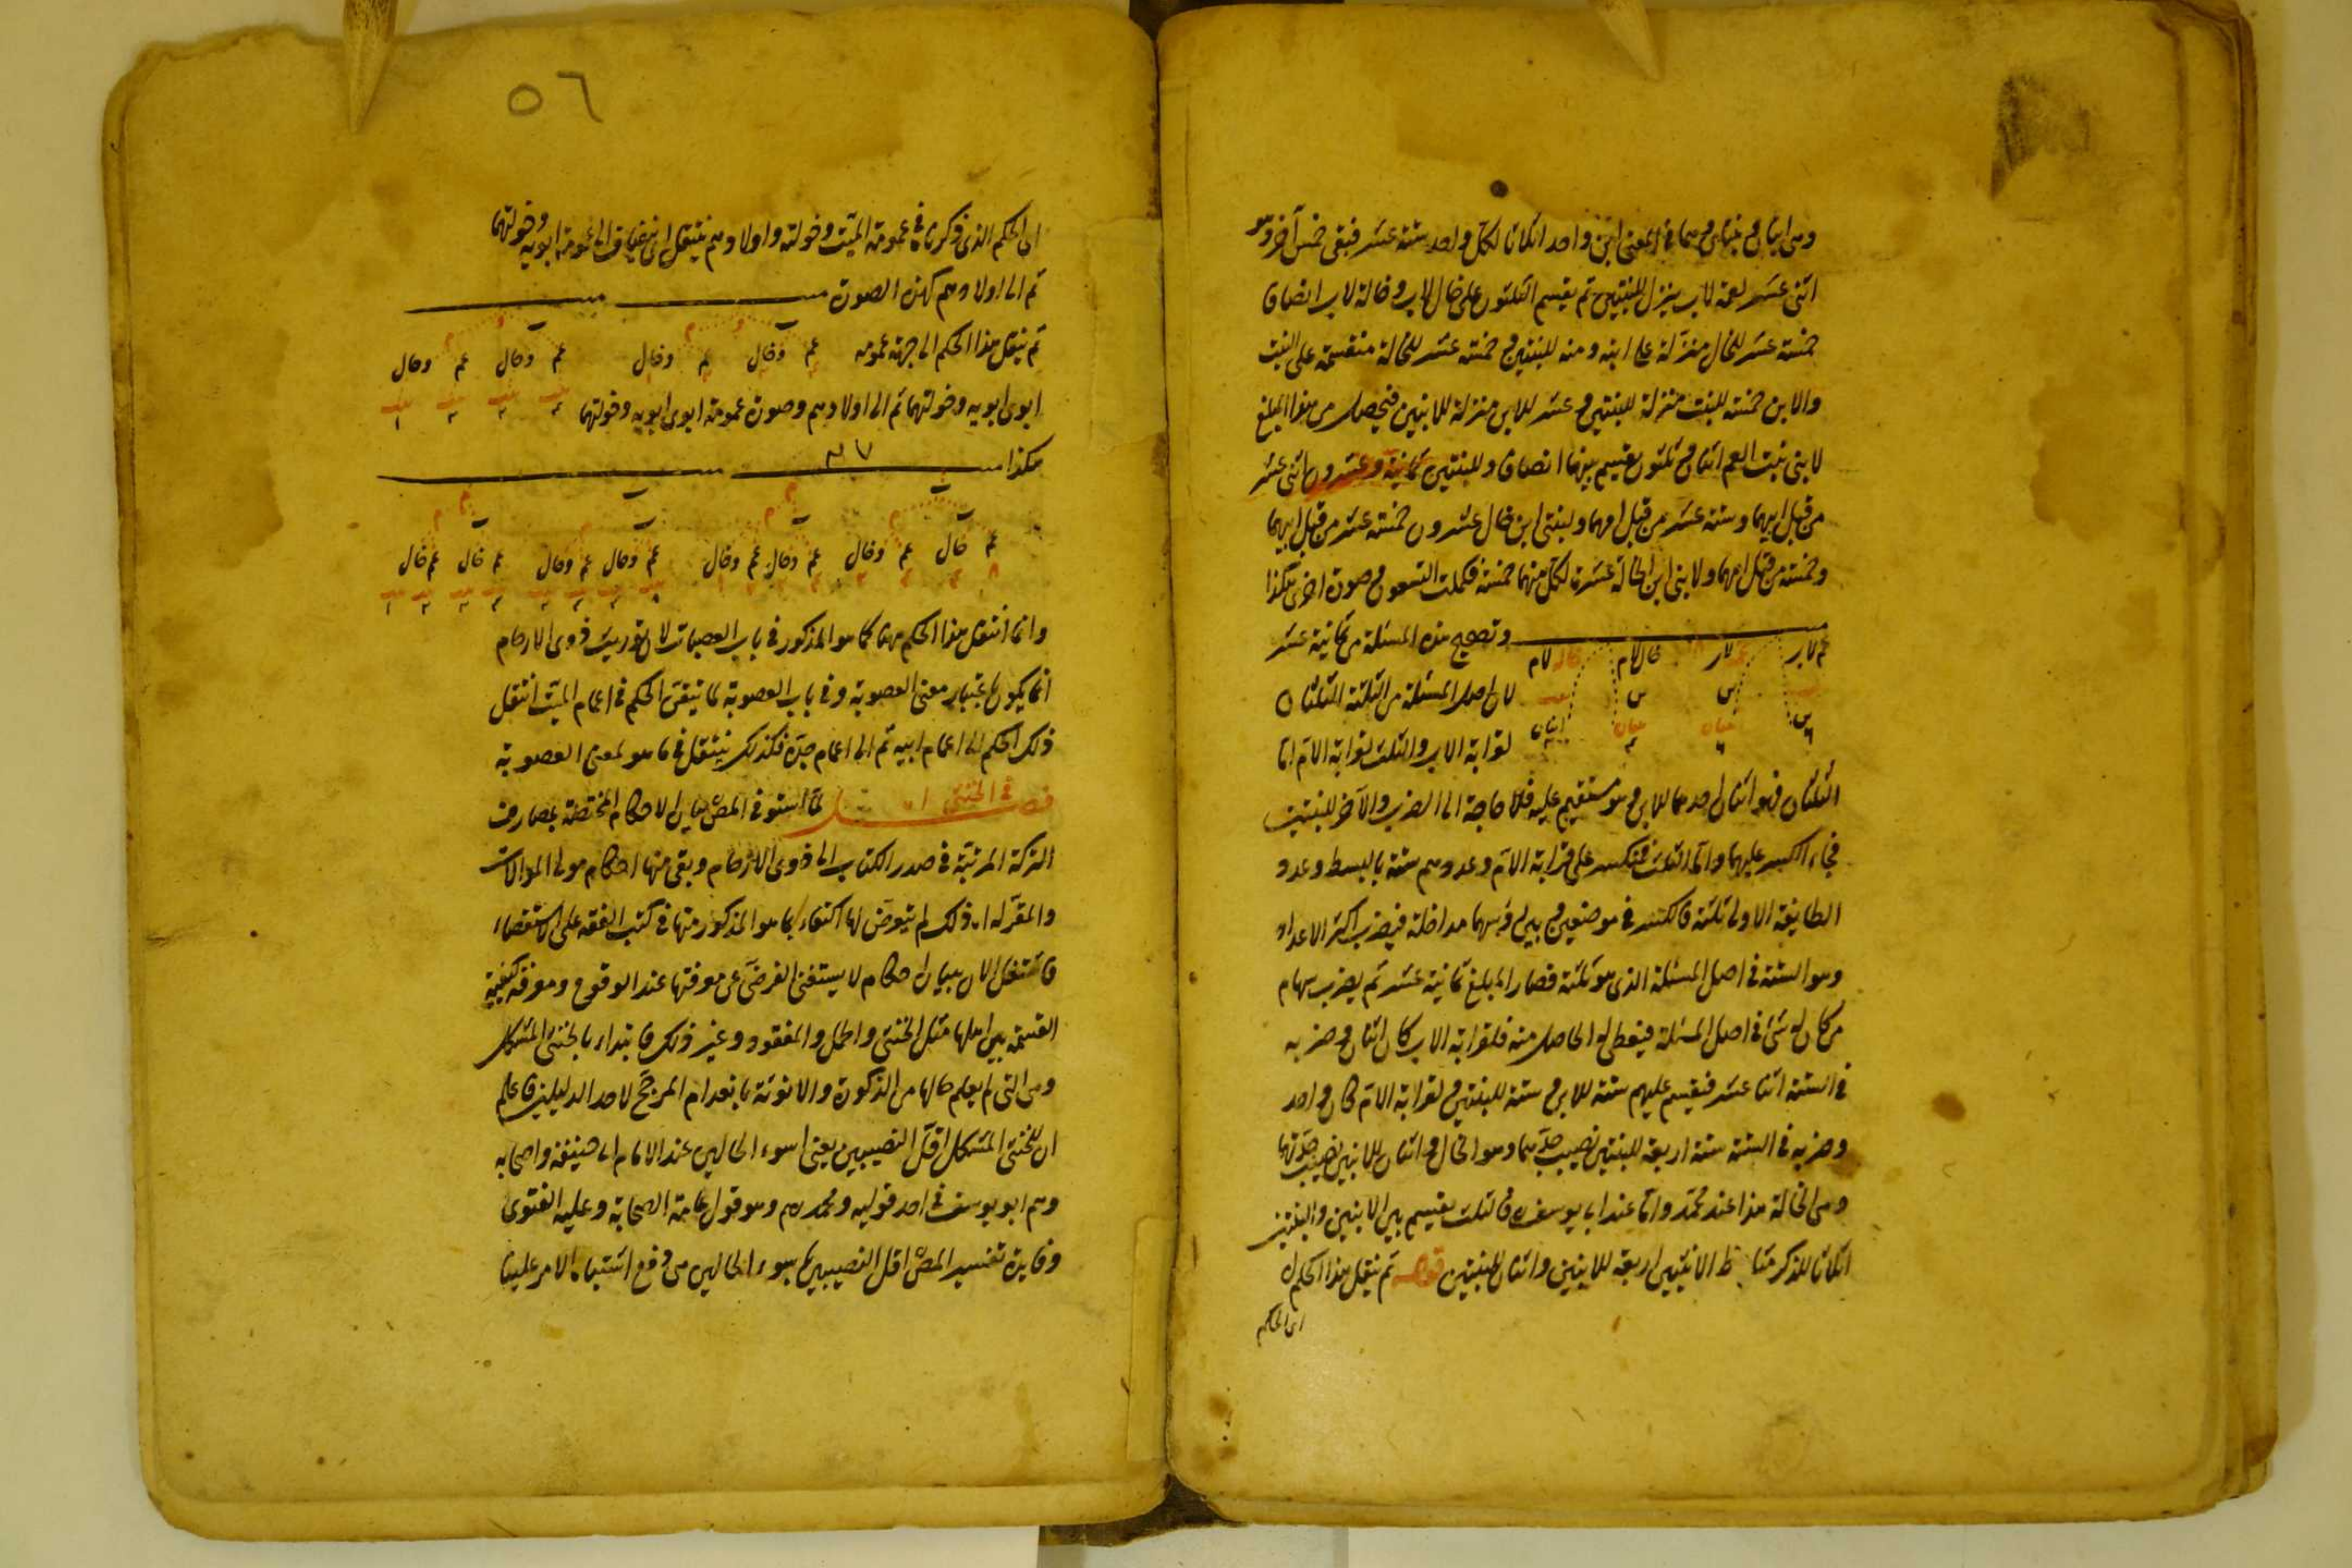 وهي اثنان في بنتان وهما في المعنى ابن واحد اثلاثا لكل واحد ستة عشر فبقي خمس آخر وهو
اثنى عشر لعمة لاب ينزل للبنتين ثم يقسم الثلثون على خال لاب وخالة لاب انصافا
خمسة عشر للخال منزلة على ابنه ومنه للبنتين وخمسة عشر للخالة منقسمة على البنت
والابن خمسة للبنت منزلة للبنتين وعشر للابن منزلة للابنين فتحصل من هذا المبلغ
لابنى بنت العم اثنان وثلثون يقسم بينهما انصافا وللبنتين ثمانية وعشرون اثنى عشر
من قبل ابيهما وستة عشر من قبل امهما ولبنتى ابن خال عشرون خمسة عشر من قبل ابيهما
وخمسة من قبل امهما ولابنى ابن الخالة عشرة لكل منهما خمسة فكملت التسعون وصورة اخرى هكذا
وتصحيح هذه المسئلة من ثمانية عشر
خال لام خالة لام
لان اصل المسئلة من الثلثة الثلثان
لقرابة الاب والثلث لقرابة الام اما
الثلثان فهو اثنان احدهما للابن وهو مستقيم عليه فلا حاجة الى الضرب والآخر للبنتين
فجاء الكسر عليهما واما الثلث فينكسر على قرابة الام وعددهم ستة بالبسط وعدد
الطايفة الاولى ثلثة فانكسر في موضعين وبين رؤسهما مداخلة فيضرب اكثر الاعداد
وهو الستة في اصل المسئلة الذى هو ثلثة فصار المبلغ ثمانية عشر ثم يضرب سهام
من كان له شئ في اصل المسئلة فيعطى له الحاصل منه فلقرابة الاب كان اثنان وضربه
في الستة اثنا عشر فيقسم عليهم ستة للابن وستة للبنتين ولقرابة الام كان واحد
وضربه في الستة ستة اربعة للبنتين نصيب جدهما وهو الخال واثنان للابنين نصيب جدتهما
وهي الخالة هذا عند محمد واما عند ابى يوسف ره فالثلث يقسم بين الابنين والبنتين
اثلاثا للذكر مثل حظ الانثيين اربعة للابنين واثنان للبنتين قوله ثم ينقل هذا الحكم
اى الحكم
٥٦
اى الحكم الذى ذكرناه في عمومة الميت وخولته واولادهم ينتقل الى عمومة ابويه وخولتهما
ثم الى اولادهم كهذه الصورة
ثم ينقل هذا الحكم الى جهة عمومة
عم وخال عم وخال عم وخال عم وخال
ابوى ابويه وخولتهما ثم الى اولادهم وصورة عمومة ابوى ابويه وخولتهما
هكذا
عم خال عم وخال عم وخال عم وخال عم وخال عم وخال عم خال عم خال
وانما انتقل هذا الحكم هنا كما هو المذكور في باب العصبات لان توريث ذوى الارحام
انما يكون باعتبار معنى العصوبة وفى باب العصوبة لما تيقن الحكم في اعمام الميت انتقل
ذلك الحكم الى اعمام ابيه ثم الى اعمام جده فكذلك ينتقل فيما هو لمعنى العصوبة
فصل في الخنثى لما استوفى المصـ بيان الاحكام المختصة بمصارف
التركة المرتبة في صدر الكتاب الى ذوى الارحام وبقى منها احكام مولى الموالات
والمقر له اه ذلك لم يتعرض لها اكتفاء بما هو المذكور منها في كتب الفقه على الاستقصاء
فاشتغل الان ببيان احكام لا يستغنى الفرضى عن معرفتها عند الوقوع ومعرفة كيفية
القسمة بين اهلها مثل الخنثى والحمل والمفقود وغير ذلك فابتداء بالخنثى المشكل
وهى التى لم يعلم حالها من الذكورة والانوثة بانعدام المرجح لاحد الدليلين فاعلم
ان للخنثى المشكل اقل النصيبين يعنى اسوء الحالين عند الامام ابى حنيفة واصحابه
وهم ابو يوسف في احد قوليه ومحمد رهم وهو قول عامة الصحابة وعليه الفتوى
وفايدة تفسير المصـ اقل النصيبين باسوء الحالين هي دفع اشتباه الامر علينا